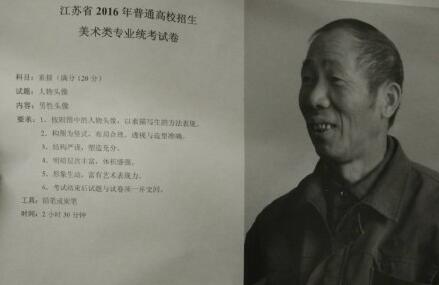 江苏省 2016 年普通高校招生
美术类专业统考试卷
科目：素描（满分120分）
试题：人物头像
内容：男性头像
要求：1、按照图中的人物头像，以素描写生的方法表现。
2、构图为竖式，布局合理，透视与造型准确。
3、结构严谨，塑造充分。
4、明暗层次丰富，体积感强。
5、形象生动，富有艺术表现力。
6、考试结束后试题与试卷须一并交回。
工具：铅笔或炭笔
时间：2 小时 30 分钟